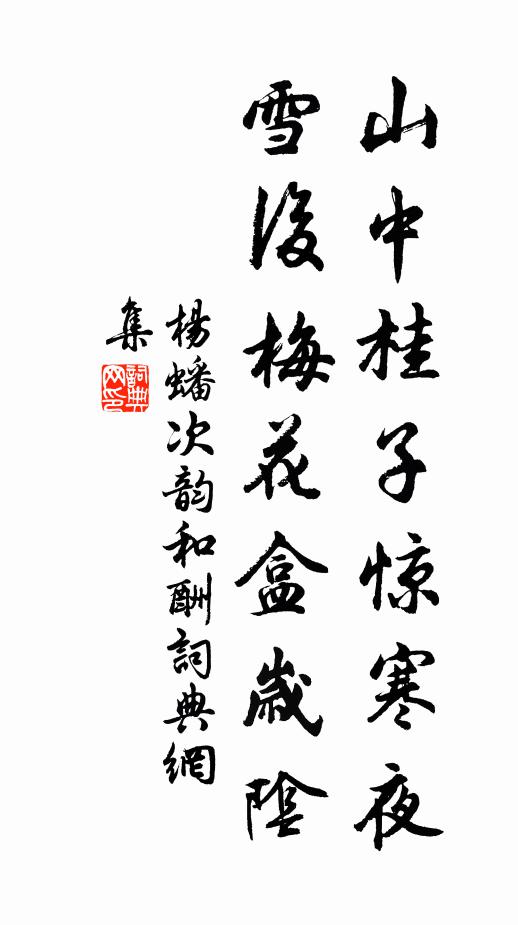 山中桂子惊寒夜
雪後梅花盒歲陰
楊蟠次韵和酬詞典網
集
詞典网印